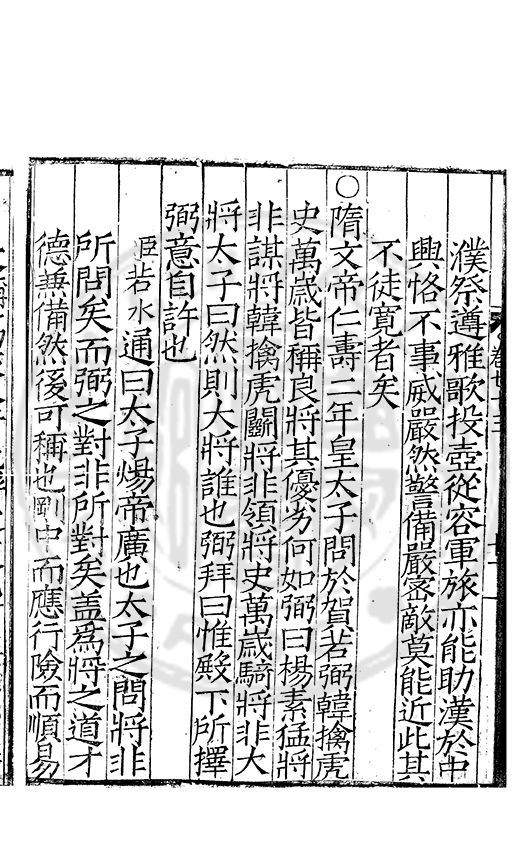 濮祭遵雅歌投壺從容軍旅亦能助漢於中
興恪不事威嚴然警備嚴密敵莫能近此其
不徒寛者矣
○隋文帝仁壽二年皇太子問於賀若弼韓擒虎
史萬歲皆稱良將其優劣何如弼曰楊素猛將
非謀將韓擒虎鬭將非領將史萬歲騎將非大
將太子曰然則大將誰也弼拜曰惟殿下所擇
弼意自許也
臣若水通曰太子煬帝廣也太子之問將非
所問矣而弼之對非所對矣盖爲將之道才
德兼備然後可稱也剛中而應行險而順易